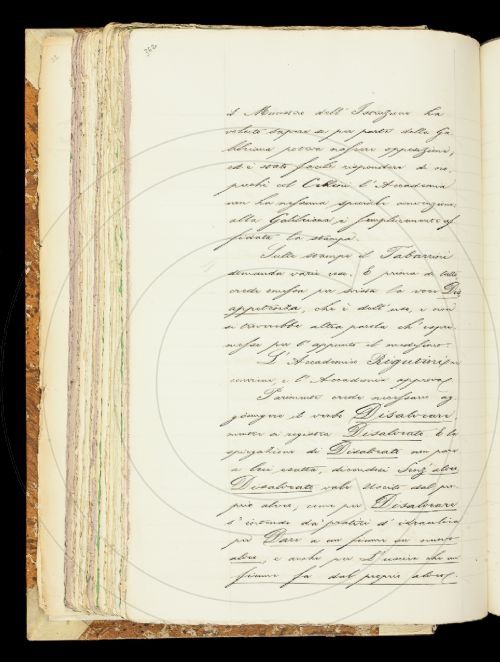 368
il Ministro dell'Istruzione ha
voluto sapere se per parte della Ga-
lileiana poteva nascere opposizione,
ed è stato facile rispondere di no,
perché col Cellini l'Accademia
non ha nessuna speciale convenzione,
alla Galileiana è semplicemente af-
fidata la stampa.
Sulle stampe il Tabarrini
domanda varie cose. E prima di tutto
crede omessa per svista la voce Dis
appetenza, che è dell'uso, e non
si troverebbe altra parola che espri-
messe per l'appunto il medesimo.
L'Accademico Rigutini
e l'Accademia approva.
Parimente crede necessario ag-
giungere il verbo Disalveare,
mentre si registra Disalveato. E la
spiegazione di Disalveato non pare
a lui esatta, dicendosi Senz'alveo
Disalveato vale Uscito dal pro-
prio alveo, come per Disalveare
s'intende da' pratici d'idraulica
per Dare a un fiume un nuovo
alveo, e anche per L'uscire che un
fiume fa dal proprio alveo.